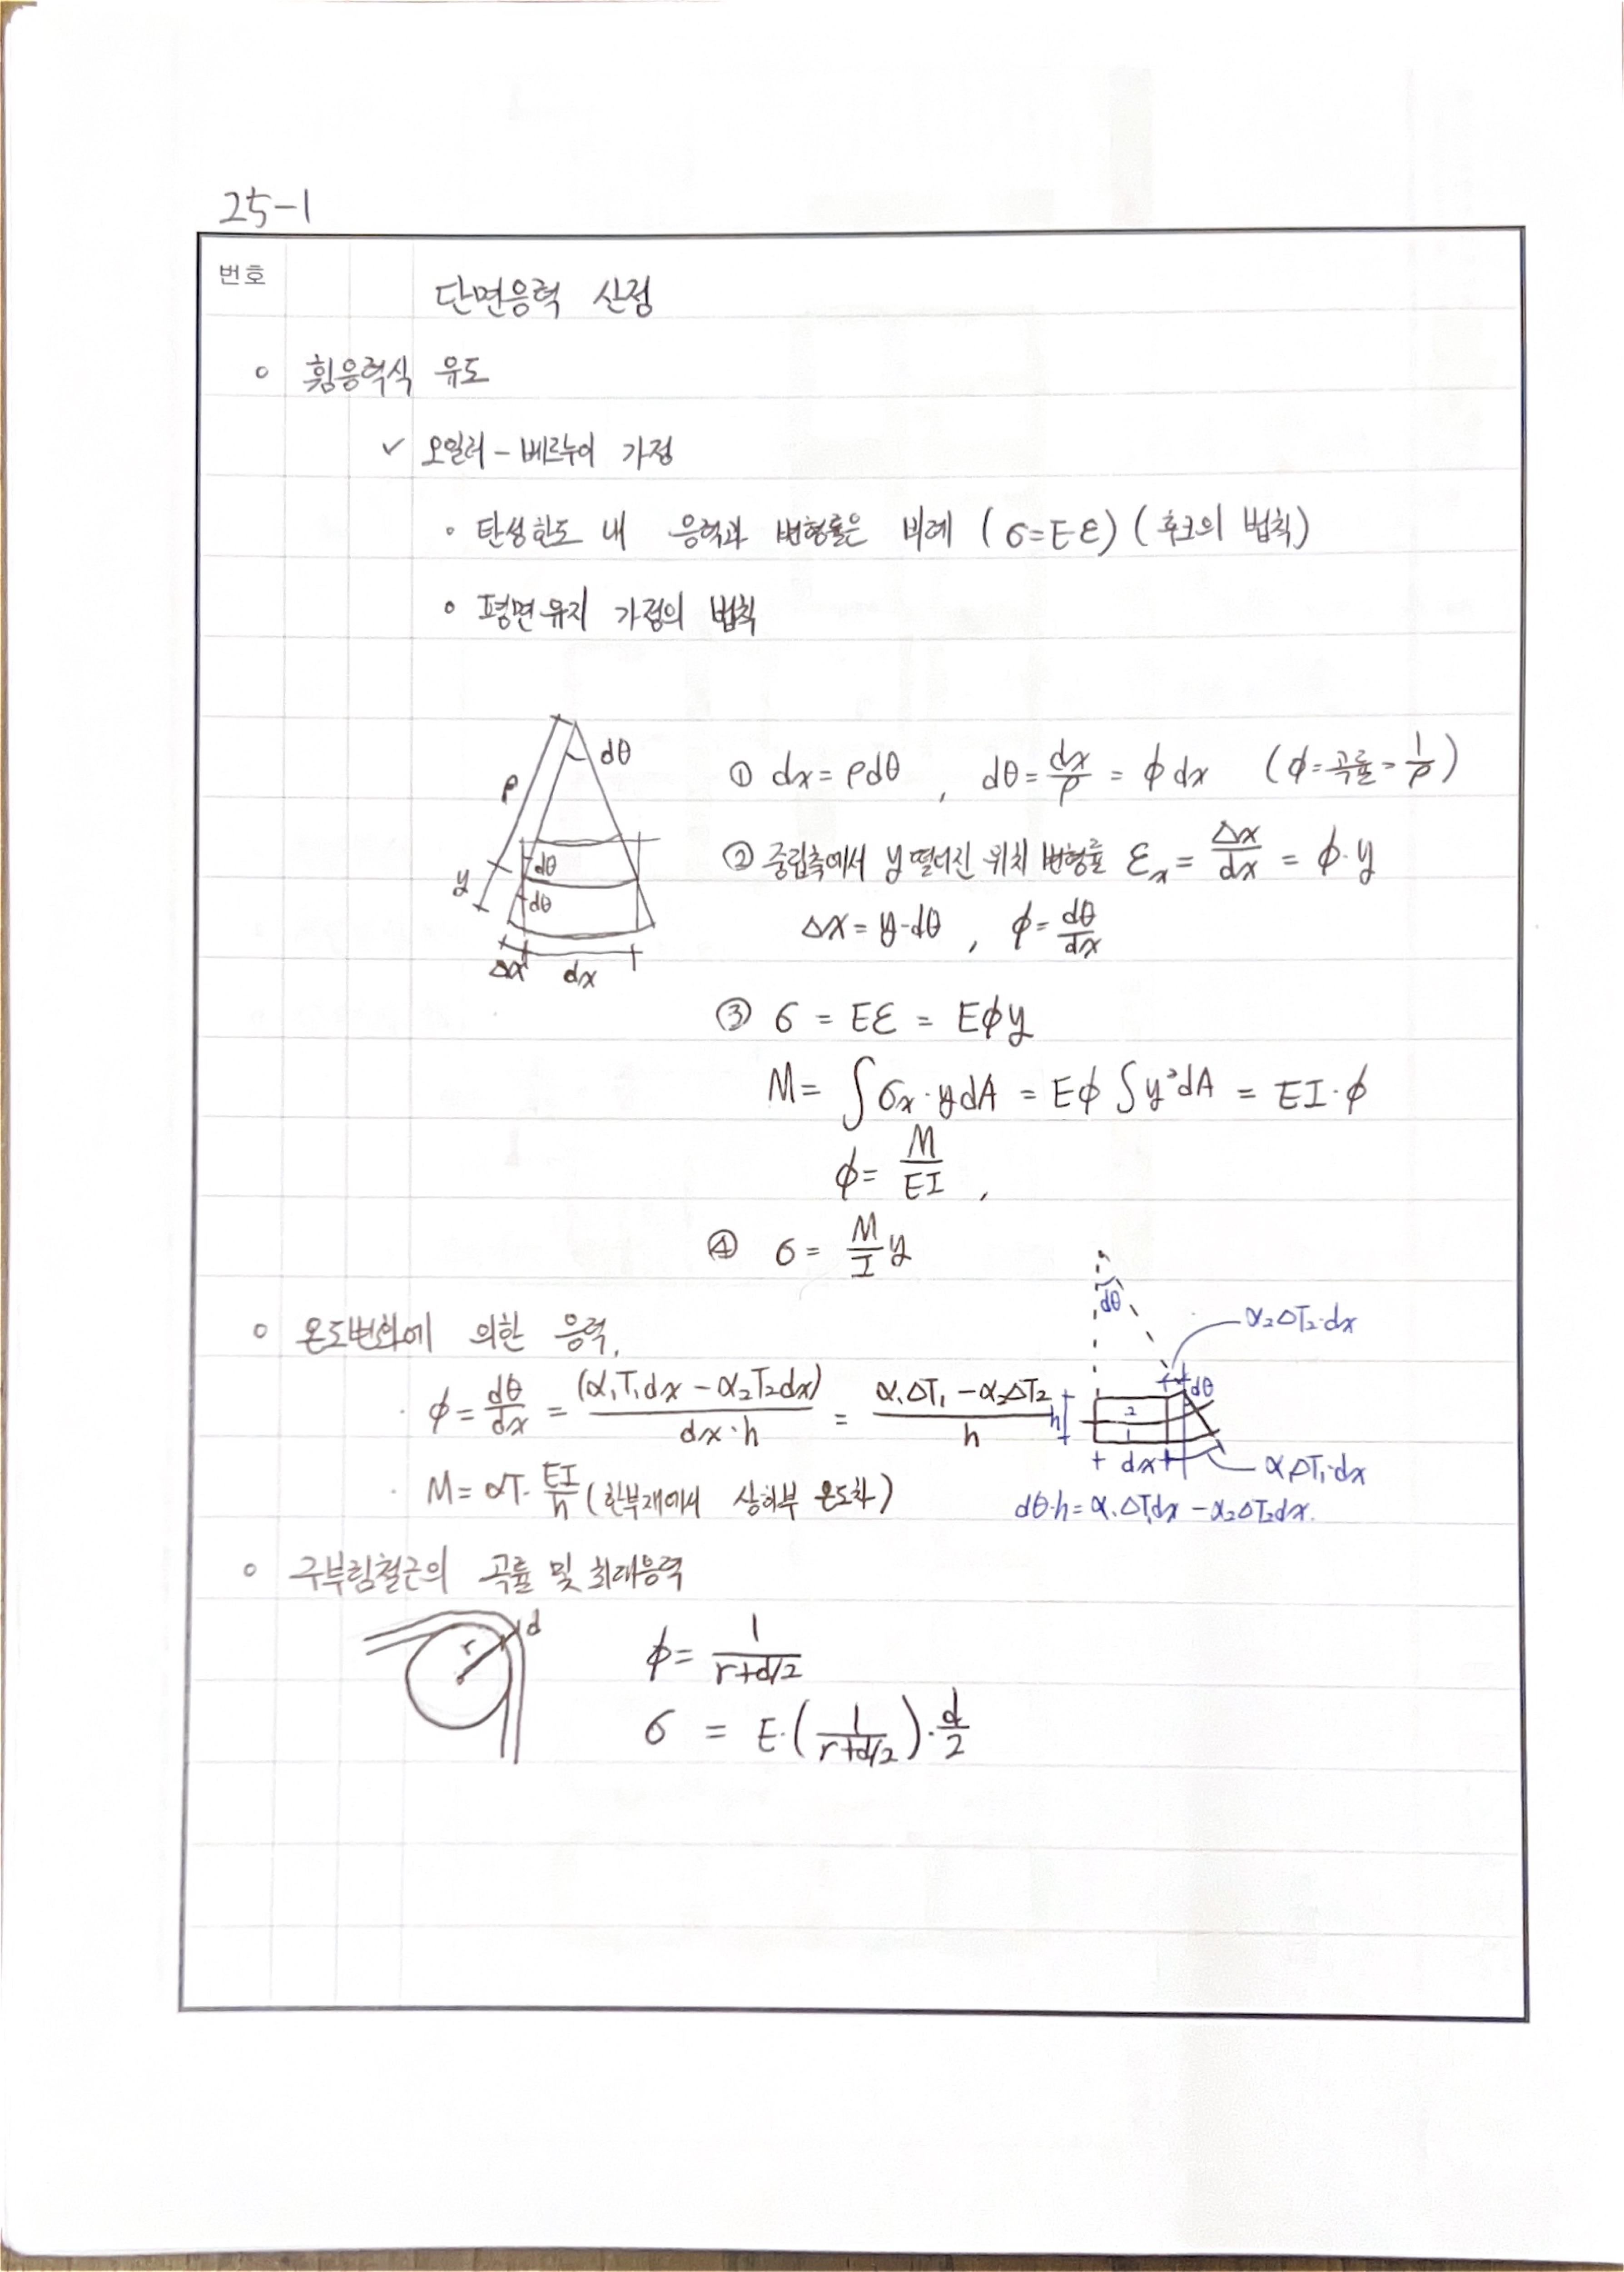 25-1
번호
단면응력 산정
○ 휨응력식 유도
✓ 오일러-베르누이 가정
∘ 탄성한도 내 응력과 변형률은 비례 (σ=Eε) (후크의 법칙)
∘ 평면유지 가정의 법칙
ρ dθ
y dθ
dθ
Δx dx
① dx = ρdθ , dθ = dx/ρ = ϕ dx (ϕ=곡률=1/ρ)
② 중립축에서 y 떨어진 위치 변형률 εx = Δx/dx = ϕ·y
Δx = y·dθ , ϕ = dθ/dx
③ σ = Eε = Eϕy
M = ∫σx·ydA = Eϕ∫y²dA = EI·ϕ
ϕ = M/EI ,
④ σ = M/I y
○ 온도변화에 의한 응력,
· ϕ = dθ/dx = (α₁T₁dx - α₂T₂dx)/dx·h = α₁ΔT₁ - α₂ΔT₂/h
· M = αT·EI/h (한부재에서 상하부 온도차)
dθ
α₂ΔT₂·dx
dθ
h 2
1
dx
α₁ΔT₁·dx
dθ·h = α₁ΔT₁dx - α₂ΔT₂dx.
○ 구부림철근의 곡률 및 최대응력
r d
ϕ = 1/r+d/2
σ = E·(1/r+d/2)·d/2